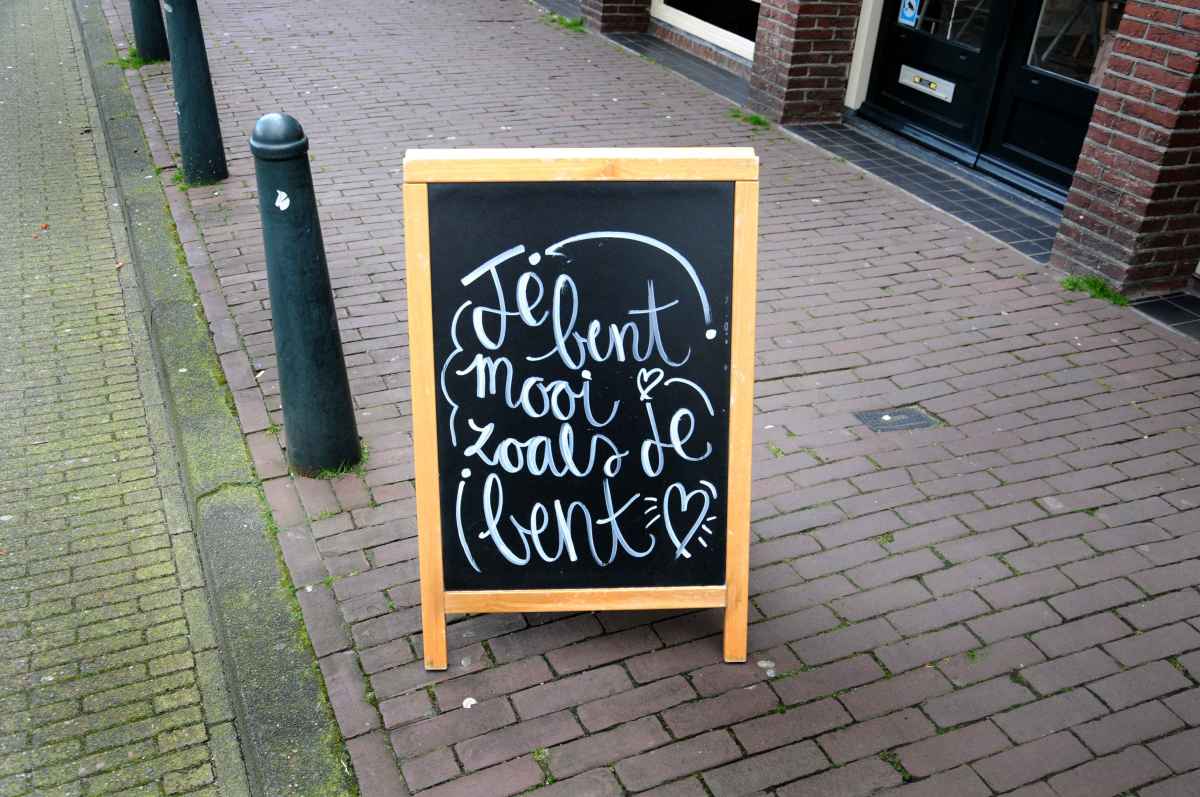 Je bent
mooi
zoals je
bent